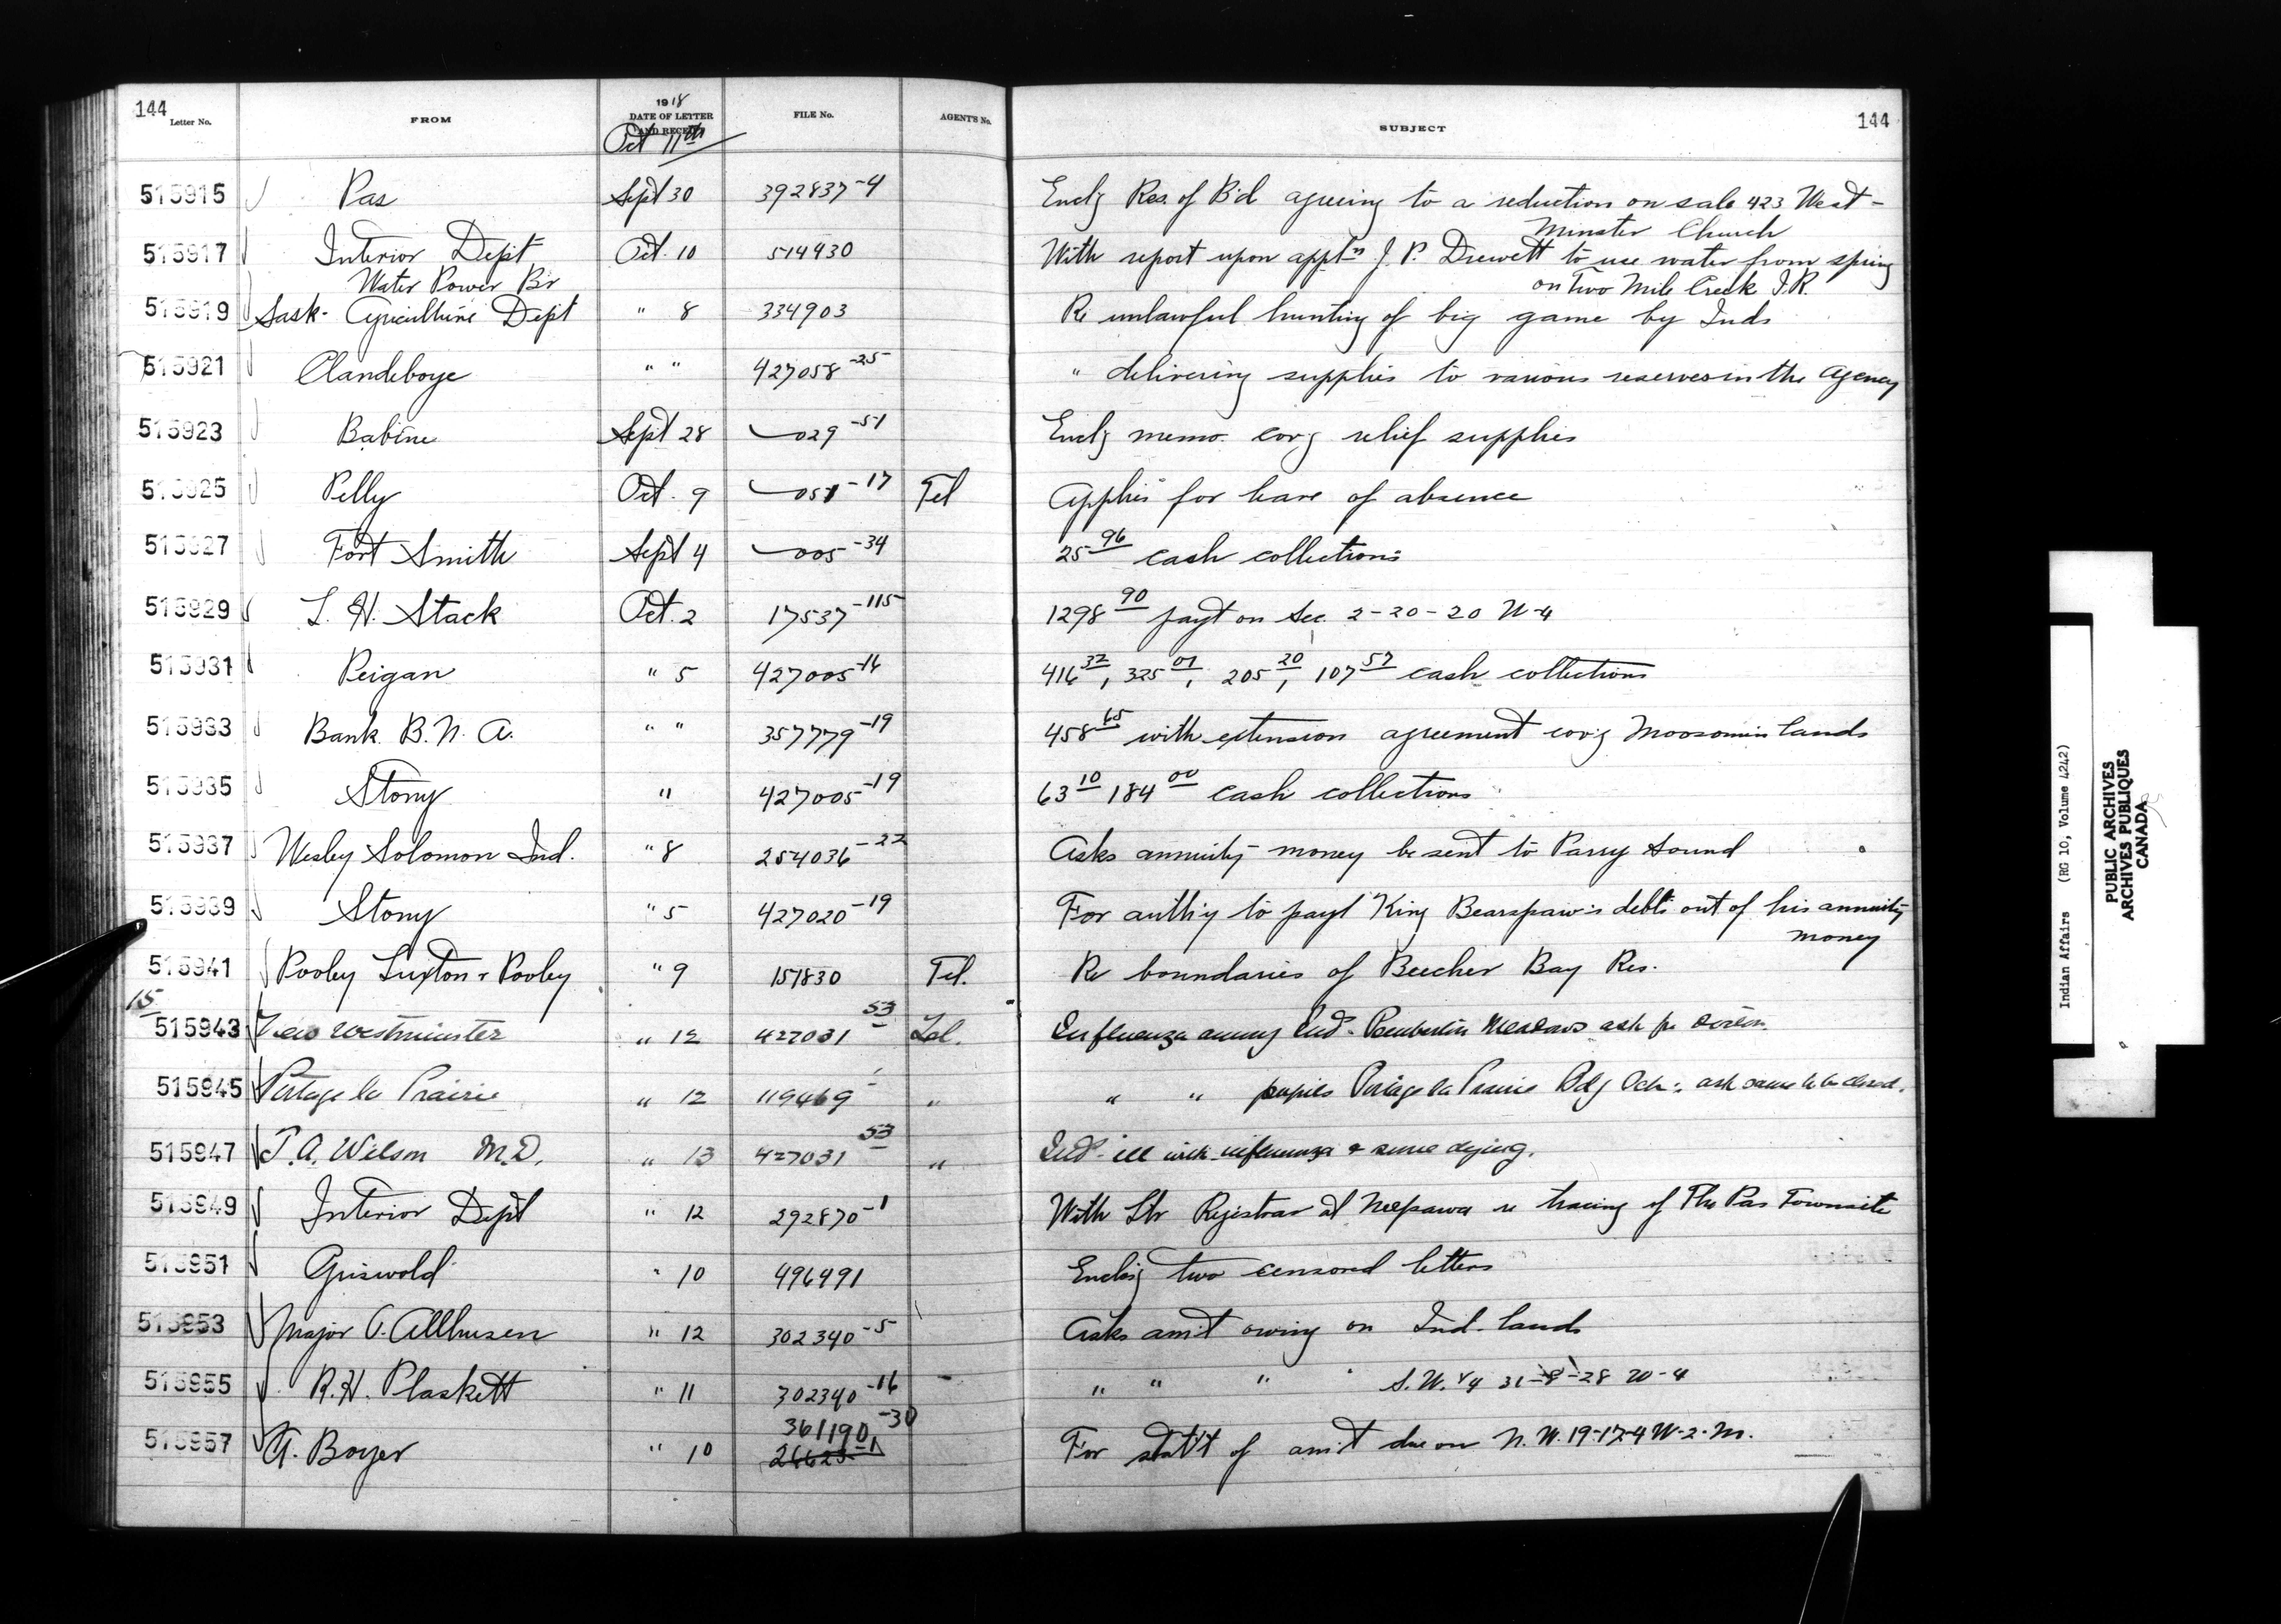 144 Letter No. FROM 1918 DATE OF LETTER AND RECEIPT FILE No. AGENT'S No. SUBJECT 144
Oct 11th
515915 Pas Sept 30 392837-4 Encl'g Res. of B'd agreeing to a reduction on sale 423 West-
minster Church
515917 Interior Dept Oct. 10 514430 With report upon appt'n J. P. Drewett to use water from spring
Water Power Br on Two Mile Creek I.R.
515919 Sask. Agriculture Dept " 8 334903 Re unlawful hunting of big game by Inds
515921 Clandeboye " " 427058-25 " delivering supplies to various reserves in the Agency
515923 Babine Sept 28 029-51 Encl'g memo. cov'g relief supplies
515925 Pelly Oct. 9 051-17 Tel Applies for leave of absence
515927 Fort Smith Sept 4 005-34 25 96 cash collections
515929 L. H. Stack Oct. 2 17537-115 1298 90 payt on Sec. 2-20-20 W-4
515931 Peigan " 5 427005-16 416 32, 325 07, 205 20, 107 57 cash collections
515933 Bank B. N. A. " " 357779-19 458 65 with extension agreement cov'g Moosomin lands
515935 Stony " 427005-19 63 10 184 00 cash collections
515937 Wesley Solomon Ind. " 8 254036-22 Asks annuity money be sent to Parry Sound
515939 Stony " 5 427020-19 For auth'y to payt King Bearspaw's debts out of his annuity
money
515941 Pooley Luxton & Pooley " 9 157830 Tel. Re boundaries of Beecher Bay Res.
15
515943 New Westminster " 12 427031 53 Tel. Influenza among Inds Pemberton Meadows ask for doctor.
515945 Portage la Prairie " 12 119469 " " " pupils Portage la Prairie Bdg Sch: ask same to be closed.
515947 T. A. Wilson M.D. " 13 427031 53 " Inds ill with influenza & some dying.
515949 Interior Dept " 12 292870-1 With Ltr Registrar at Neepawa re tracing of The Pas Townsite
515951 Griswold " 10 496491 Enclo'g two censored letters
515953 Major O. Allhusen " 12 302340-5 Asks am't owing on Ind. lands
515955 R. H. Plaskett " 11 302340-16 " " " " S.W. 1/4 31-8-28 W-4
361190-30
515957 A. Boyer " 10 26623-1 For stat't of am't due on N. W. 19-17-4 W-2-M.
Indian Affairs (RG 10, Volume 4242)
PUBLIC ARCHIVES
ARCHIVES PUBLIQUES
CANADA